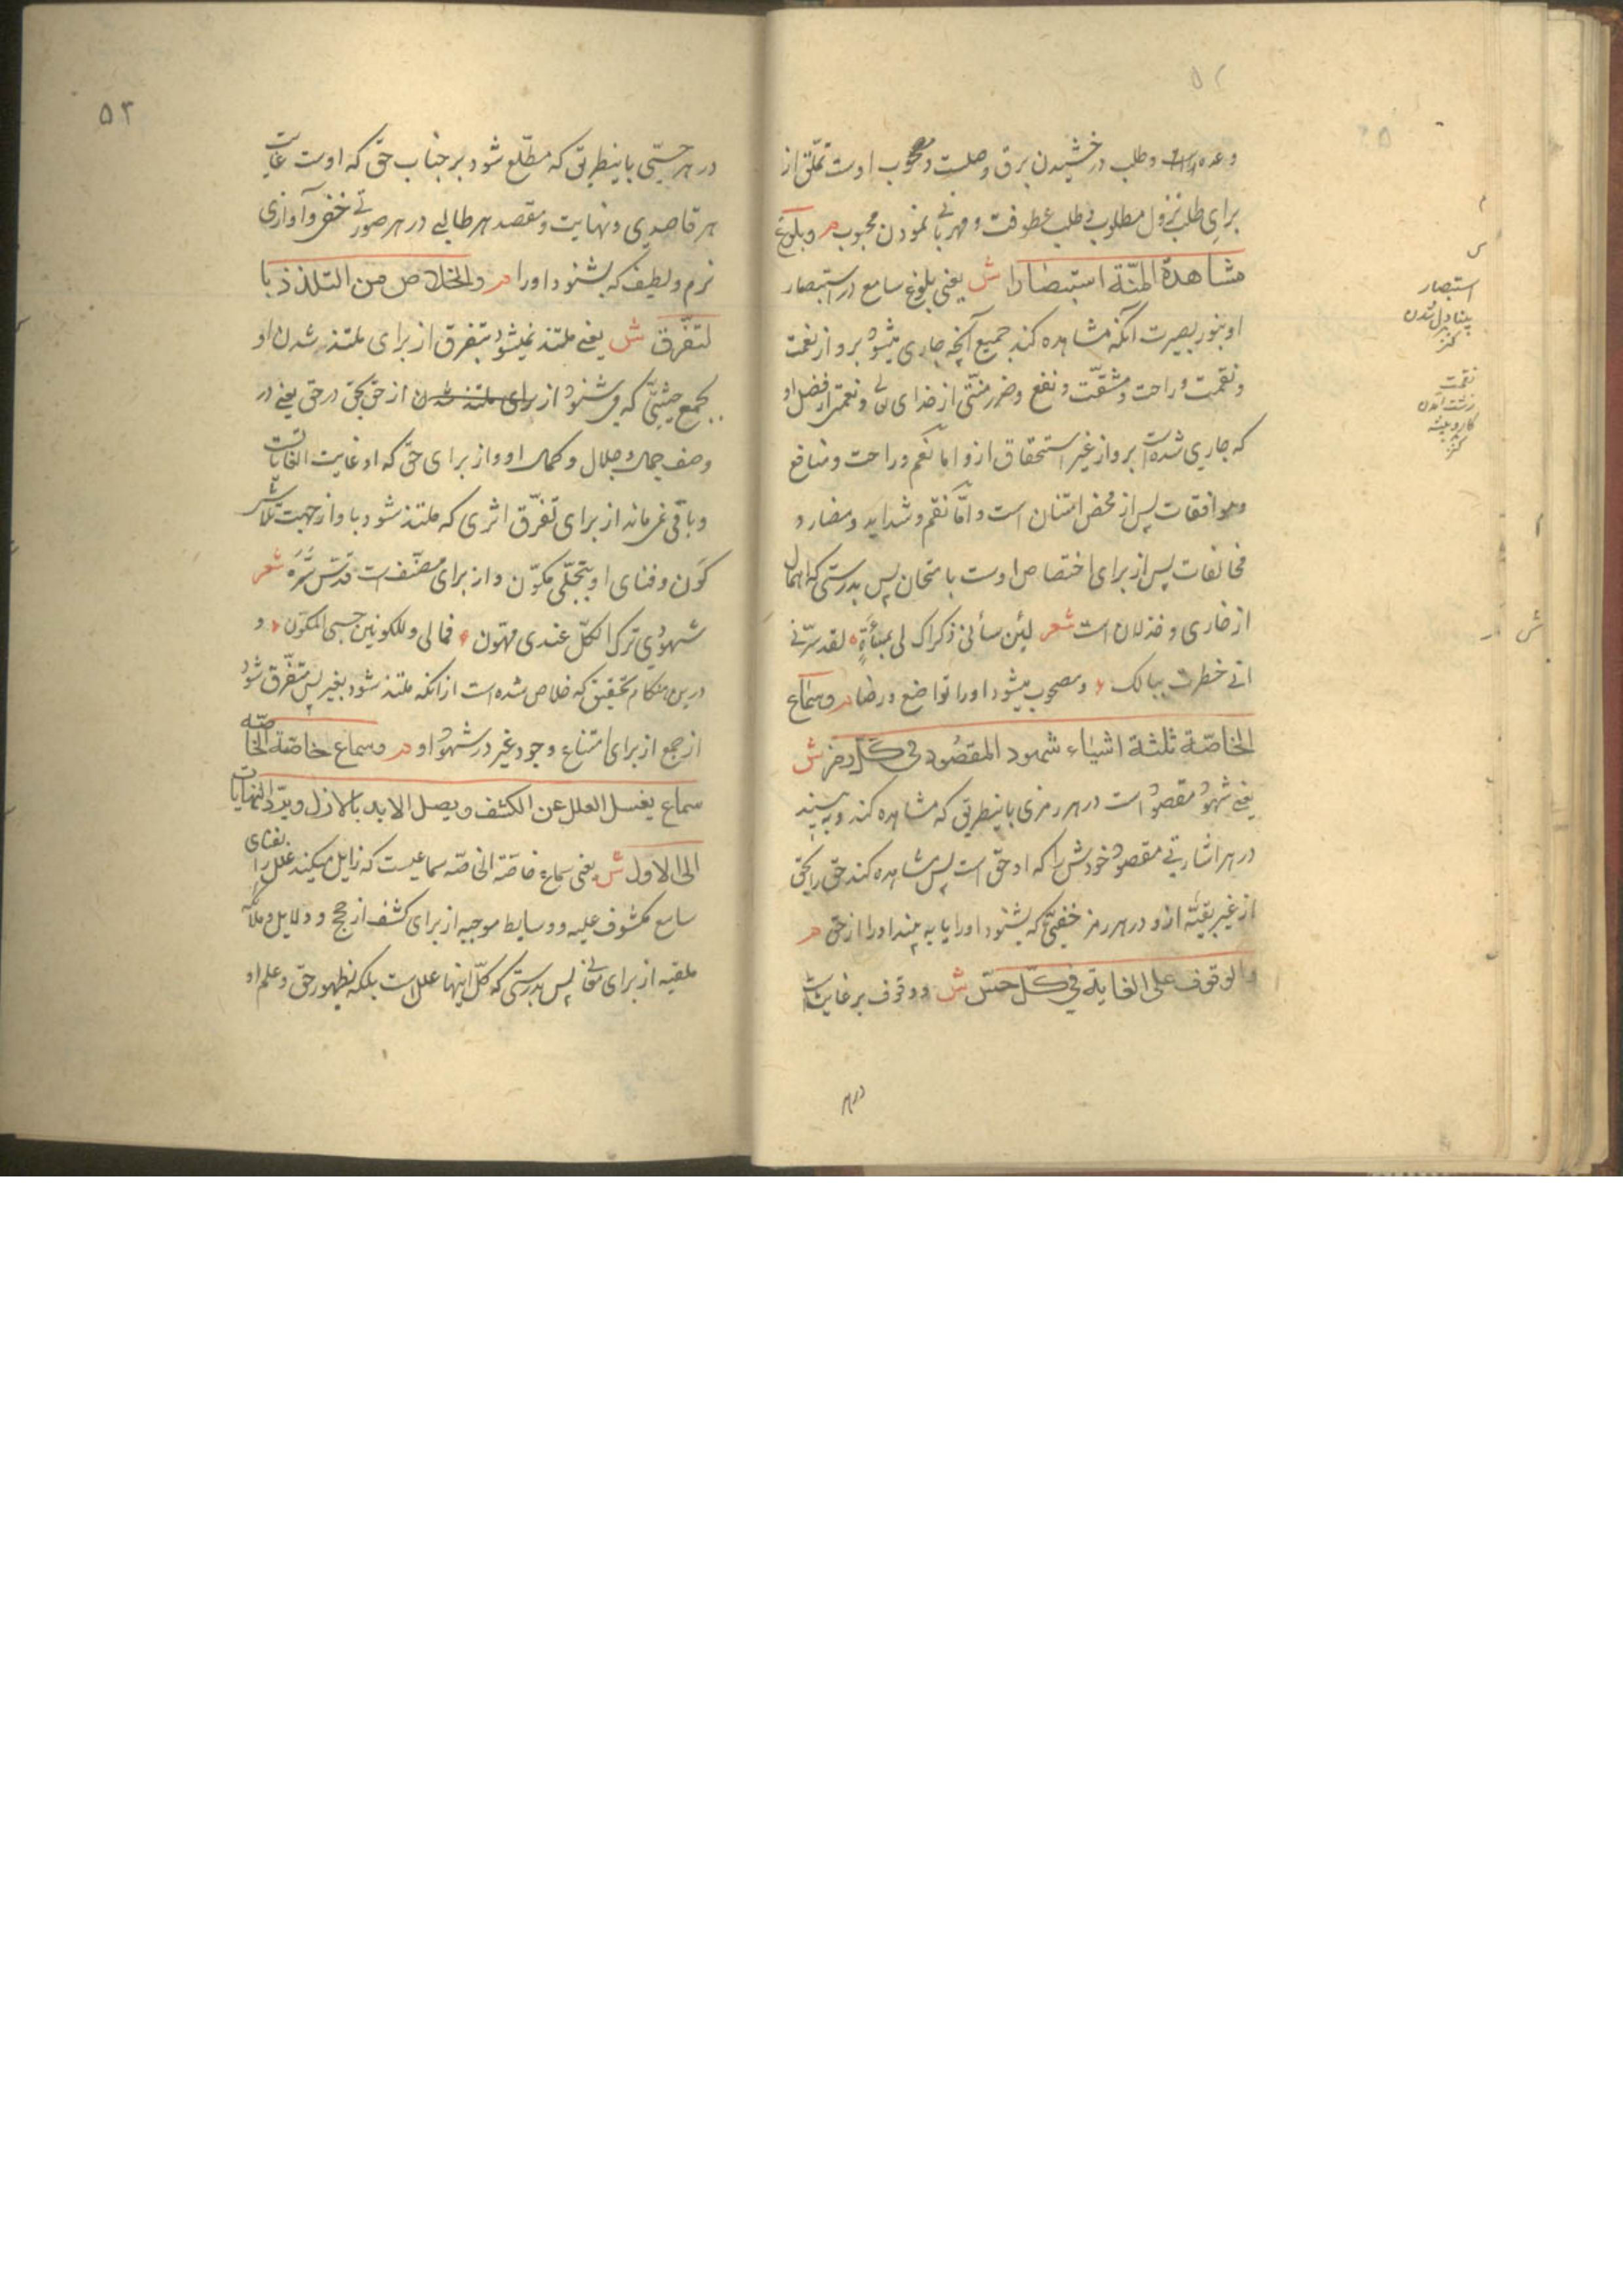 وعده وراست وطلب درخشیدن برق وصلت ومحبوب اوست تملّق از
برای طلب نزول مطلوب وطلب عطوفت ومهربانی نمودن محبوب م وبلوغ
مشاهدة المنّة استبصارا ش یعنی بلوغ سامع در استبصار
او بنور بصیرت آنکه مشاهده کند جمیع آنچه جاری میشود برو از نعمت
ونقمت وراحت ومشقّت ونفع وضرر منّتی از خدای تعالی ونعمتی از فضل او
که جاری شده است برو از غیر استحقاق ازو اما نعم وراحت ومنافع
وموافقات پس از محض امتنان است وامّا نقم وشداید ومضار و
مخالفات پس از برای اختصاص اوست بامتحان پس بدرستی که اهمال
از خاری وخذلان است شعر لئن سائنی ذکراک لی بمسأة لقد سرّنی
انی خطرت ببالک ومصحوب میشود اورا تواضع ورضا م وسماع
الخاصّة ثلثة اشیاء شهود المقصُود فی کلّ رمز ش
یعنی شهود مقصود است در هر رمزی باینطریق که مشاهده کند وبه بیند
در هر اشارتی مقصود خودش را که او حق است پس مشاهده کند حق را بحق
از غیر بقیّه ازو در هر رمز خفیّی که بشنود اورا یا به بیند اورا از حق م
والوقوف علی الغایة فی کلّ حسّ ش ووقوف بر غایت است
در هر
استبصار
بینا دل شدن
کنز
نقمت
زشت آمدن
کار و پیشه
کنز
۵۳
در هر حسّی باینطریق که مطّلع شود بر جناب حق که اوست غایت
هر قاصدی ونهایت ومقصد هر طالبی در هر صوتی خفی وآوازی
نرم ولطیف که بشنود اورا م والخلاص من التلذذ با
لتفّرق ش یعنی ملتذ نمیشود بتفرق از برای ملتذ شدن او
بجمع حیثیّتی که می شنود از برای ملتذ شدن از حق بحق در حق یعنی در
وصف جمال وجلال وکمال او واز برای حق که او غایت الغایاتست
وباقی نمیماند از برای تفرّق اثری که ملتذ شود باو از جهت تلاشی
کَون وفنای او بتجلّی مکوّن واز برای مصنّف است قدّس سّره شعر
شهودی ترک الکلّ عندی مهوّن فمالی وللکونین حسبی المکوّن و
درین هنگام تحقیق که خلاص شده است از انکه ملتذ شود بغیر پس متفّرق شود
از جمع از برای امتناع وجود غیر در شهود او م وسماع خاصّة الخاصّه
سماع یغسل العلل عن الکشف ویصل الابد بالازل ویرّد النهایات
الی الاول ش یعنی سماع خاصّة الخاصّه سماعیست که زایل میکند علل را بفنای
سامع مکشوف علیه ووسایط موجبه از برای کشف از حجج ودلایل وملائکه
ملقیه از برای معانی پس بدرستی که کلّ اینها علل است بلکه بظهور حق وعلم او